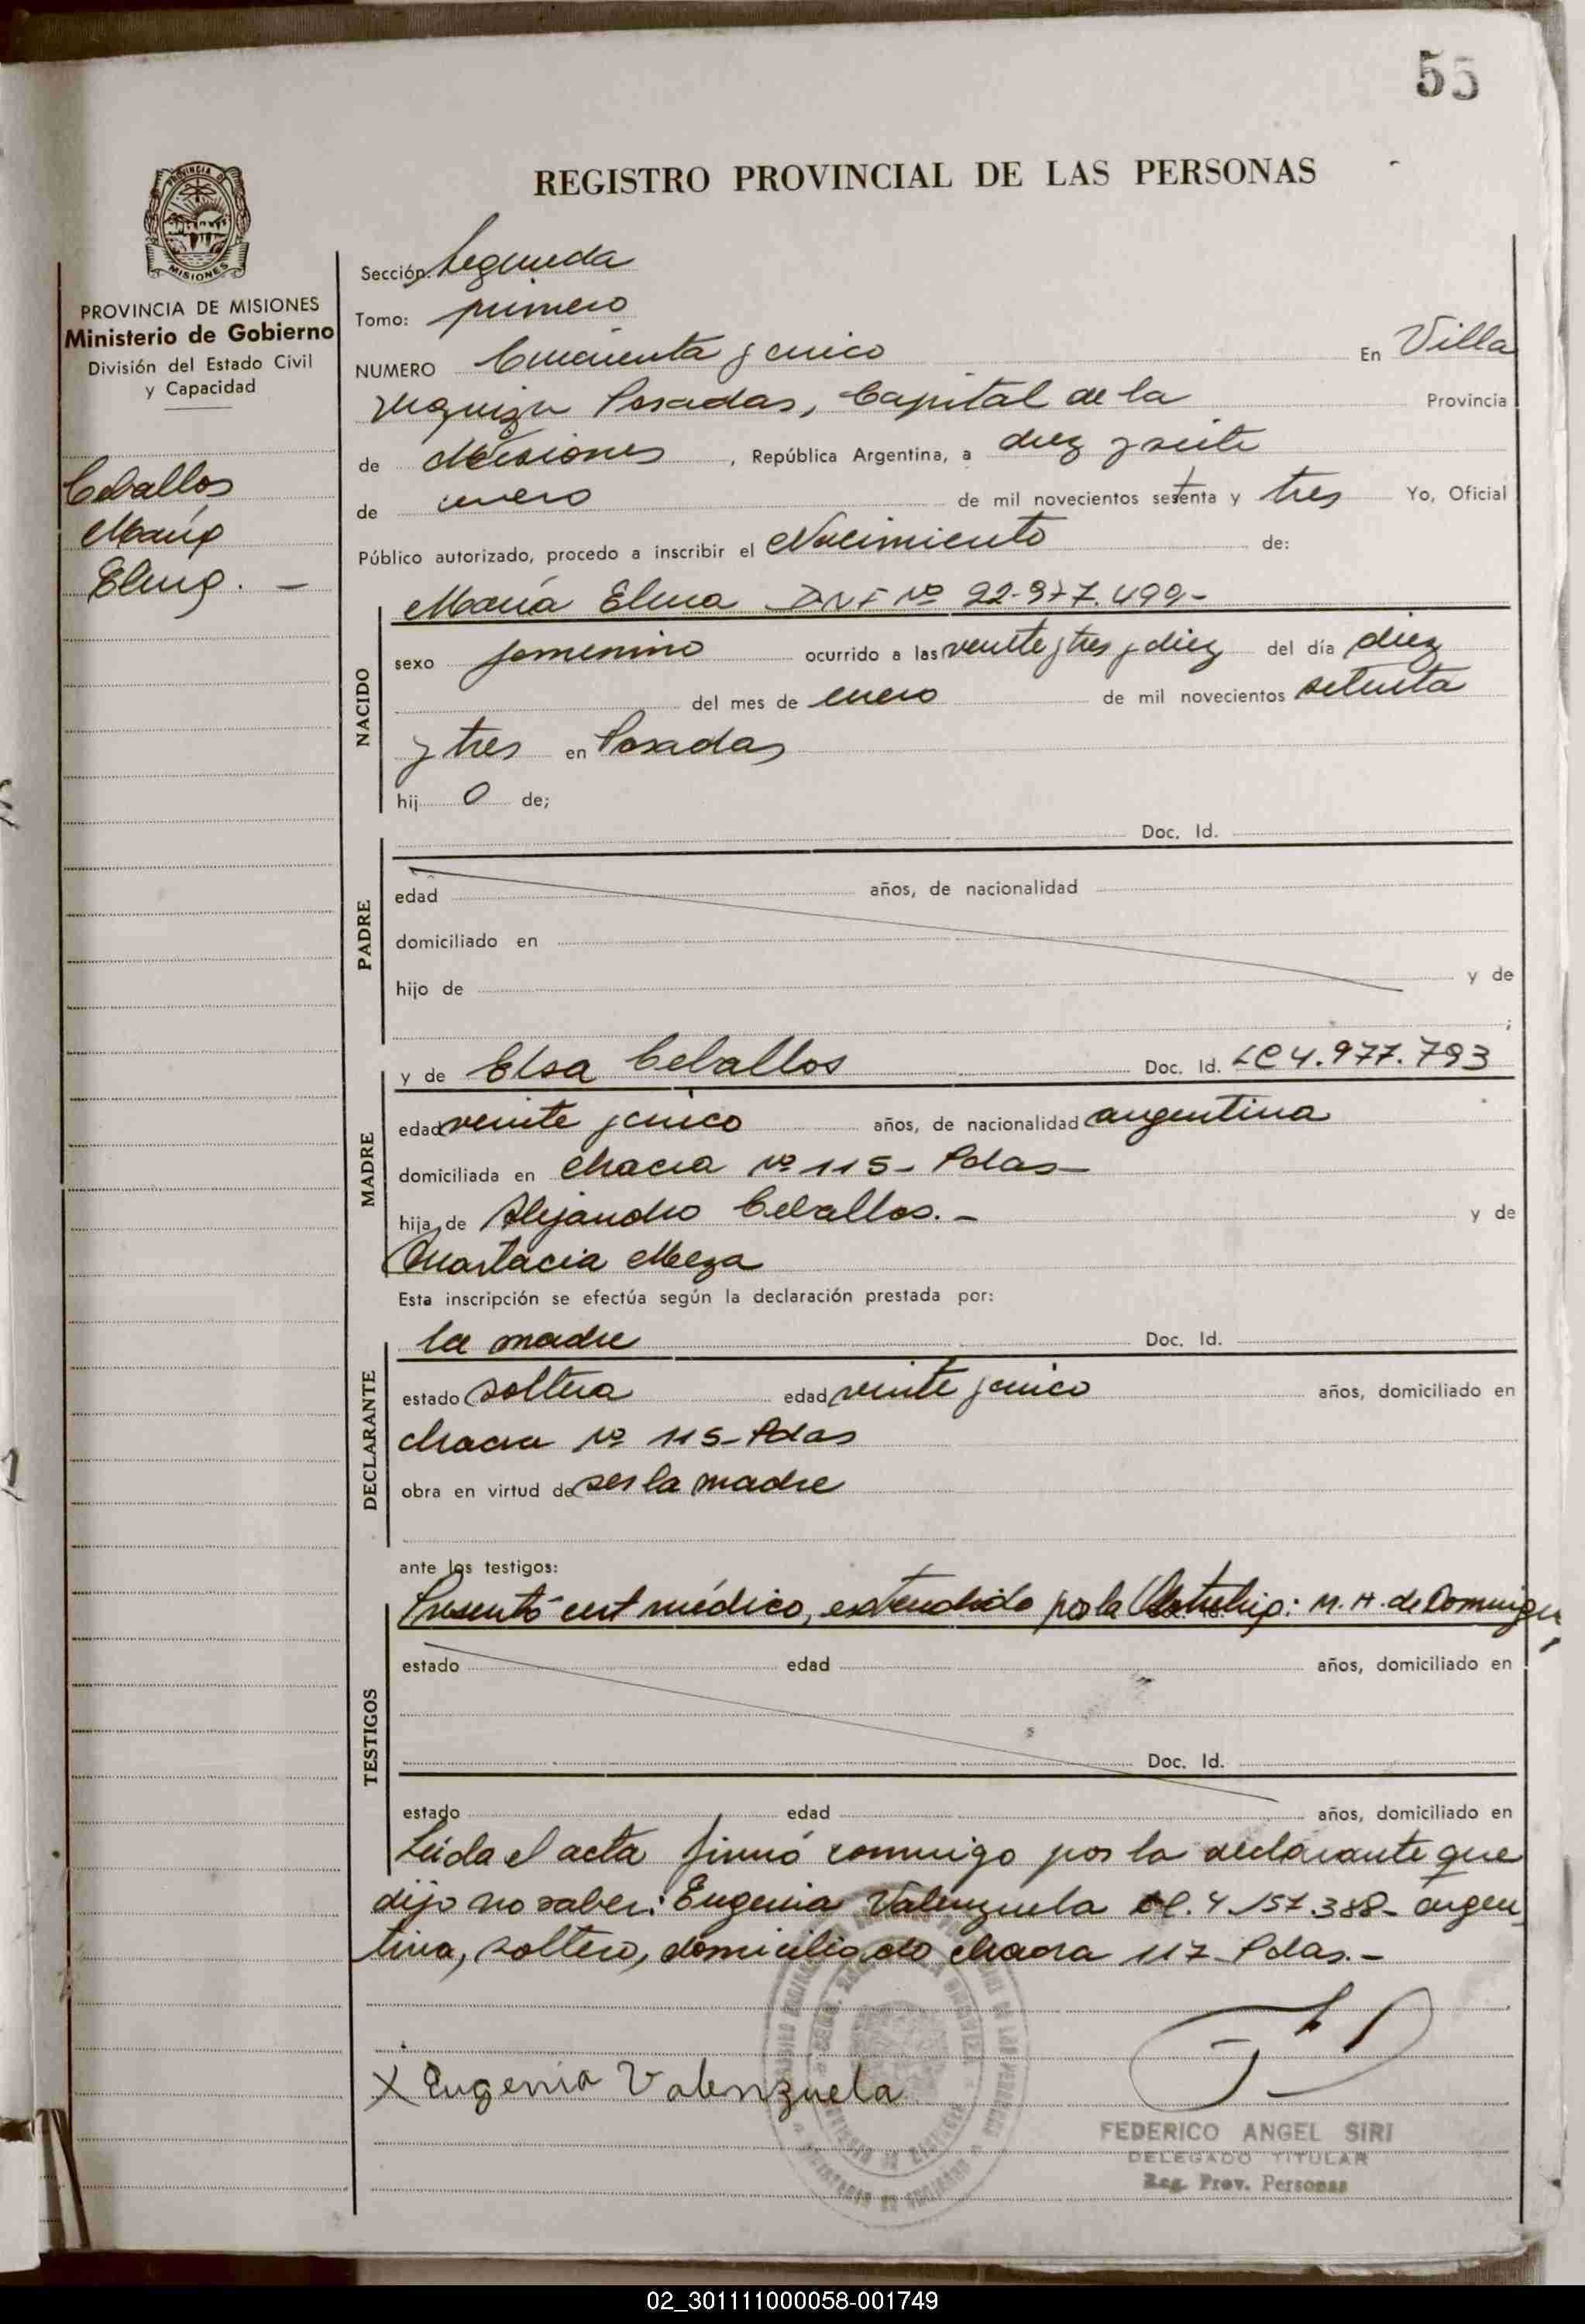 55
REGISTRO PROVINCIAL DE LAS PERSONAS
PROVINCIA DE MISIONES
Ministerio de Gobierno
División del Estado Civil
y Capacidad
Ceballos
María
Elena. —
Sección: Segunda
Tomo: primero
NUMERO Cincuenta y cinco En Villa
Urquiza Posadas, Capital de la Provincia
de Misiones, República Argentina, a diez y siete
de enero de mil novecientos setenta y tres Yo, Oficial
Público autorizado, procedo a inscribir el Nacimiento de:
NACIDO
María Elena DNI Nº 22.977.499-
sexo femenino ocurrido a las veinte y tres y diez del día diez
del mes de enero de mil novecientos setenta
y tres en Posadas
hij o de;
PADRE
Doc. Id.
edad años, de nacionalidad
domiciliado en
hijo de y de
;
MADRE
y de Elsa Ceballos Doc. Id. LC 4.977.793
edad veinte y cinco años, de nacionalidad argentina
domiciliada en Chacra Nº 115- Pdas-
hija de Alejandro Ceballos. - y de
Anastacia Meza
Esta inscripción se efectúa según la declaración prestada por:
DECLARANTE
la madre Doc. Id.
estado soltera edad veinte y cinco años, domiciliado en
chacra Nº 115- Pdas
obra en virtud de ser la madre
ante los testigos:
TESTIGOS
Presentó cert médico, extendido por la M. H. de
estado edad años, domiciliado en
Doc. Id.
estado edad años, domiciliado en
Leída el acta firmó conmigo por la declarante que
dijo no saber: Eugenia Valenzuela 4.157.388- argen
tina, soltero, domiciliado chacra 117 Pdas.-
X Eugenia Valenzuela
FEDERICO ANGEL SIRI
DELEGADO TITULAR
Reg. Prov. Personas
02_301111000058-001749